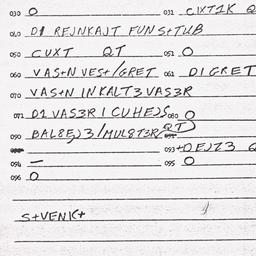 030 O 031 CIXT1K Q
040 D1 REJNKAJT FUNS+TUB
050 CUXT QT 051 O
060 VAS+N VES+/GRET 061 DIGRET
070 VAS+N INKALT3VAS3R
071 D1VAS3R I CUHEJS 080 O
090 BAL8EJ3/MUL8T3R/QT
093 +DEJZ3 Q
094 — 095 O
096 O
S+VENK+